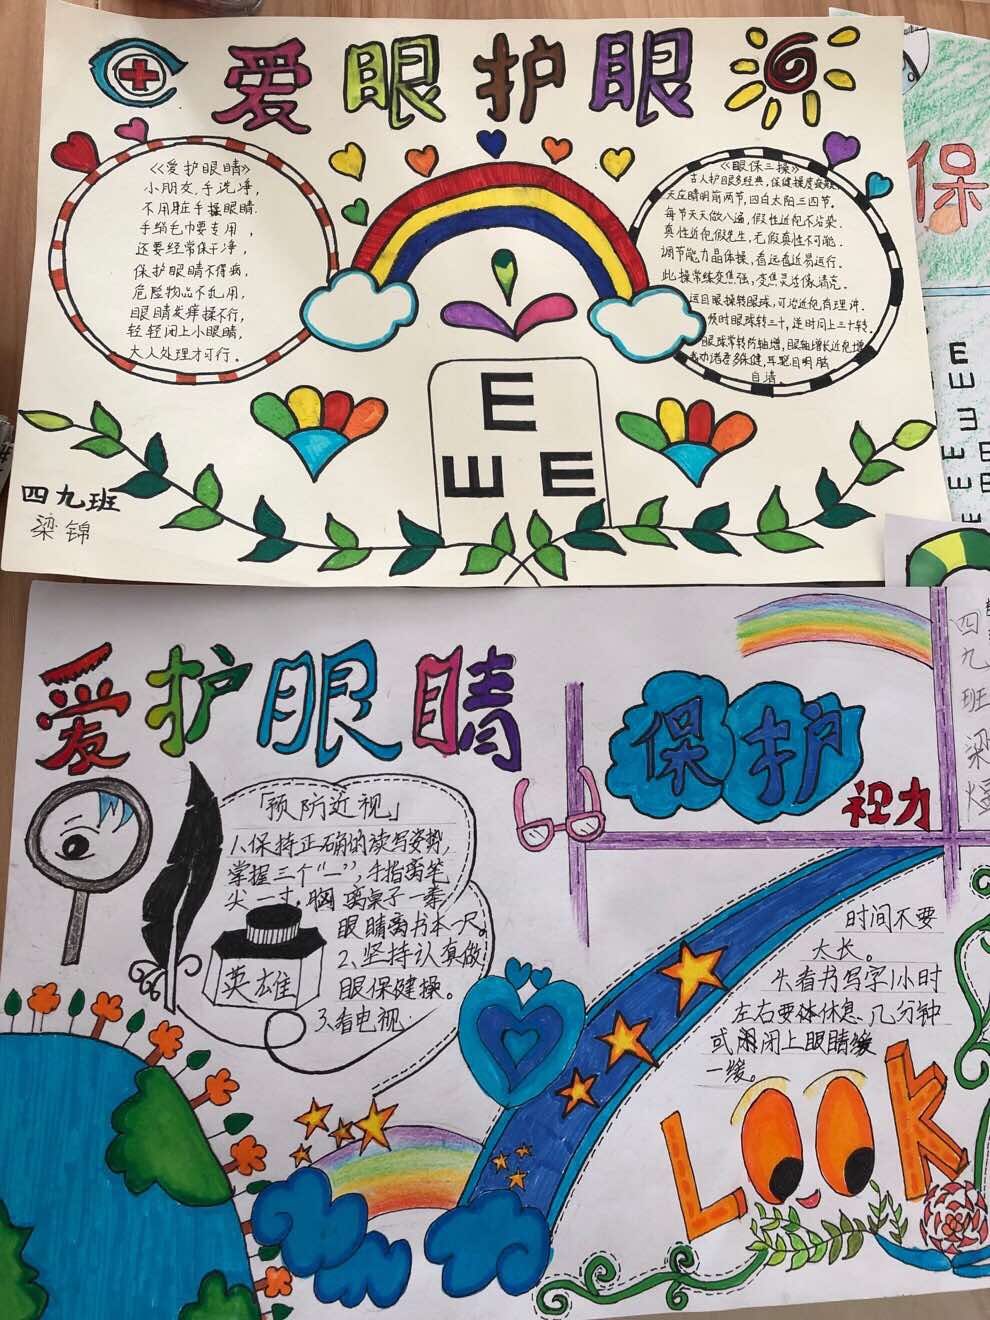 爱眼护眼
《爱护眼睛》
小朋友,手洗净,
不用脏手揉眼睛.
手绢毛巾要专用,
还要经常保干净,
保护眼睛不得病,
危险物品不乱用,
眼睛发痒揉不行,
轻轻闭上小眼睛,
大人处理才可行。
《眼保三操》
古人护眼多经典,保健操度
天应睛明前两节,四白太阳三四节.
每节天天做八遍,假性近视不沾染.
真性近视假先生,无假真性不可能.
调节能力晶体操,看远看近易运行.
此操常练变焦强,变焦灵活像清亮.
运目眼操转眼球,可治近视有理讲.
顺时眼球转三十,逆时同上三十转.
眼球常转防轴增,眼轴增长近视增
成功诸君多保健,耳聪目明脑
自清。
E
E E
四九班
梁锦
保
爱护眼睛
保护
视力
四九班梁
「预防近视」
1、保持正确的读写姿势,
掌握三个“一”,手指离笔
尖一寸,胸离桌子一拳,
眼睛离书本一尺。
2、坚持认真做
眼保健操。
3、看电视
英雄
时间不要
太长。
4、看书写字1小时
左右要休息几分钟
或闭上眼睛缓
一缓。
LOOK